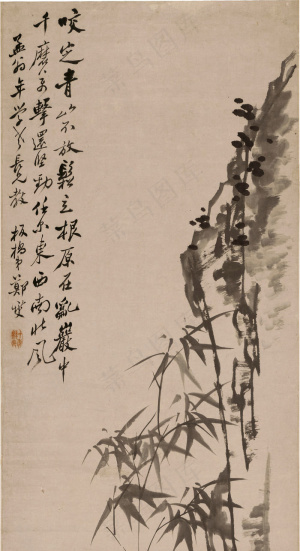 咬定青山不放鬆立根原在亂巖中
千磨万擊還堅勁任尔東西南北風
翁年学老 教 板橋弟鄭燮